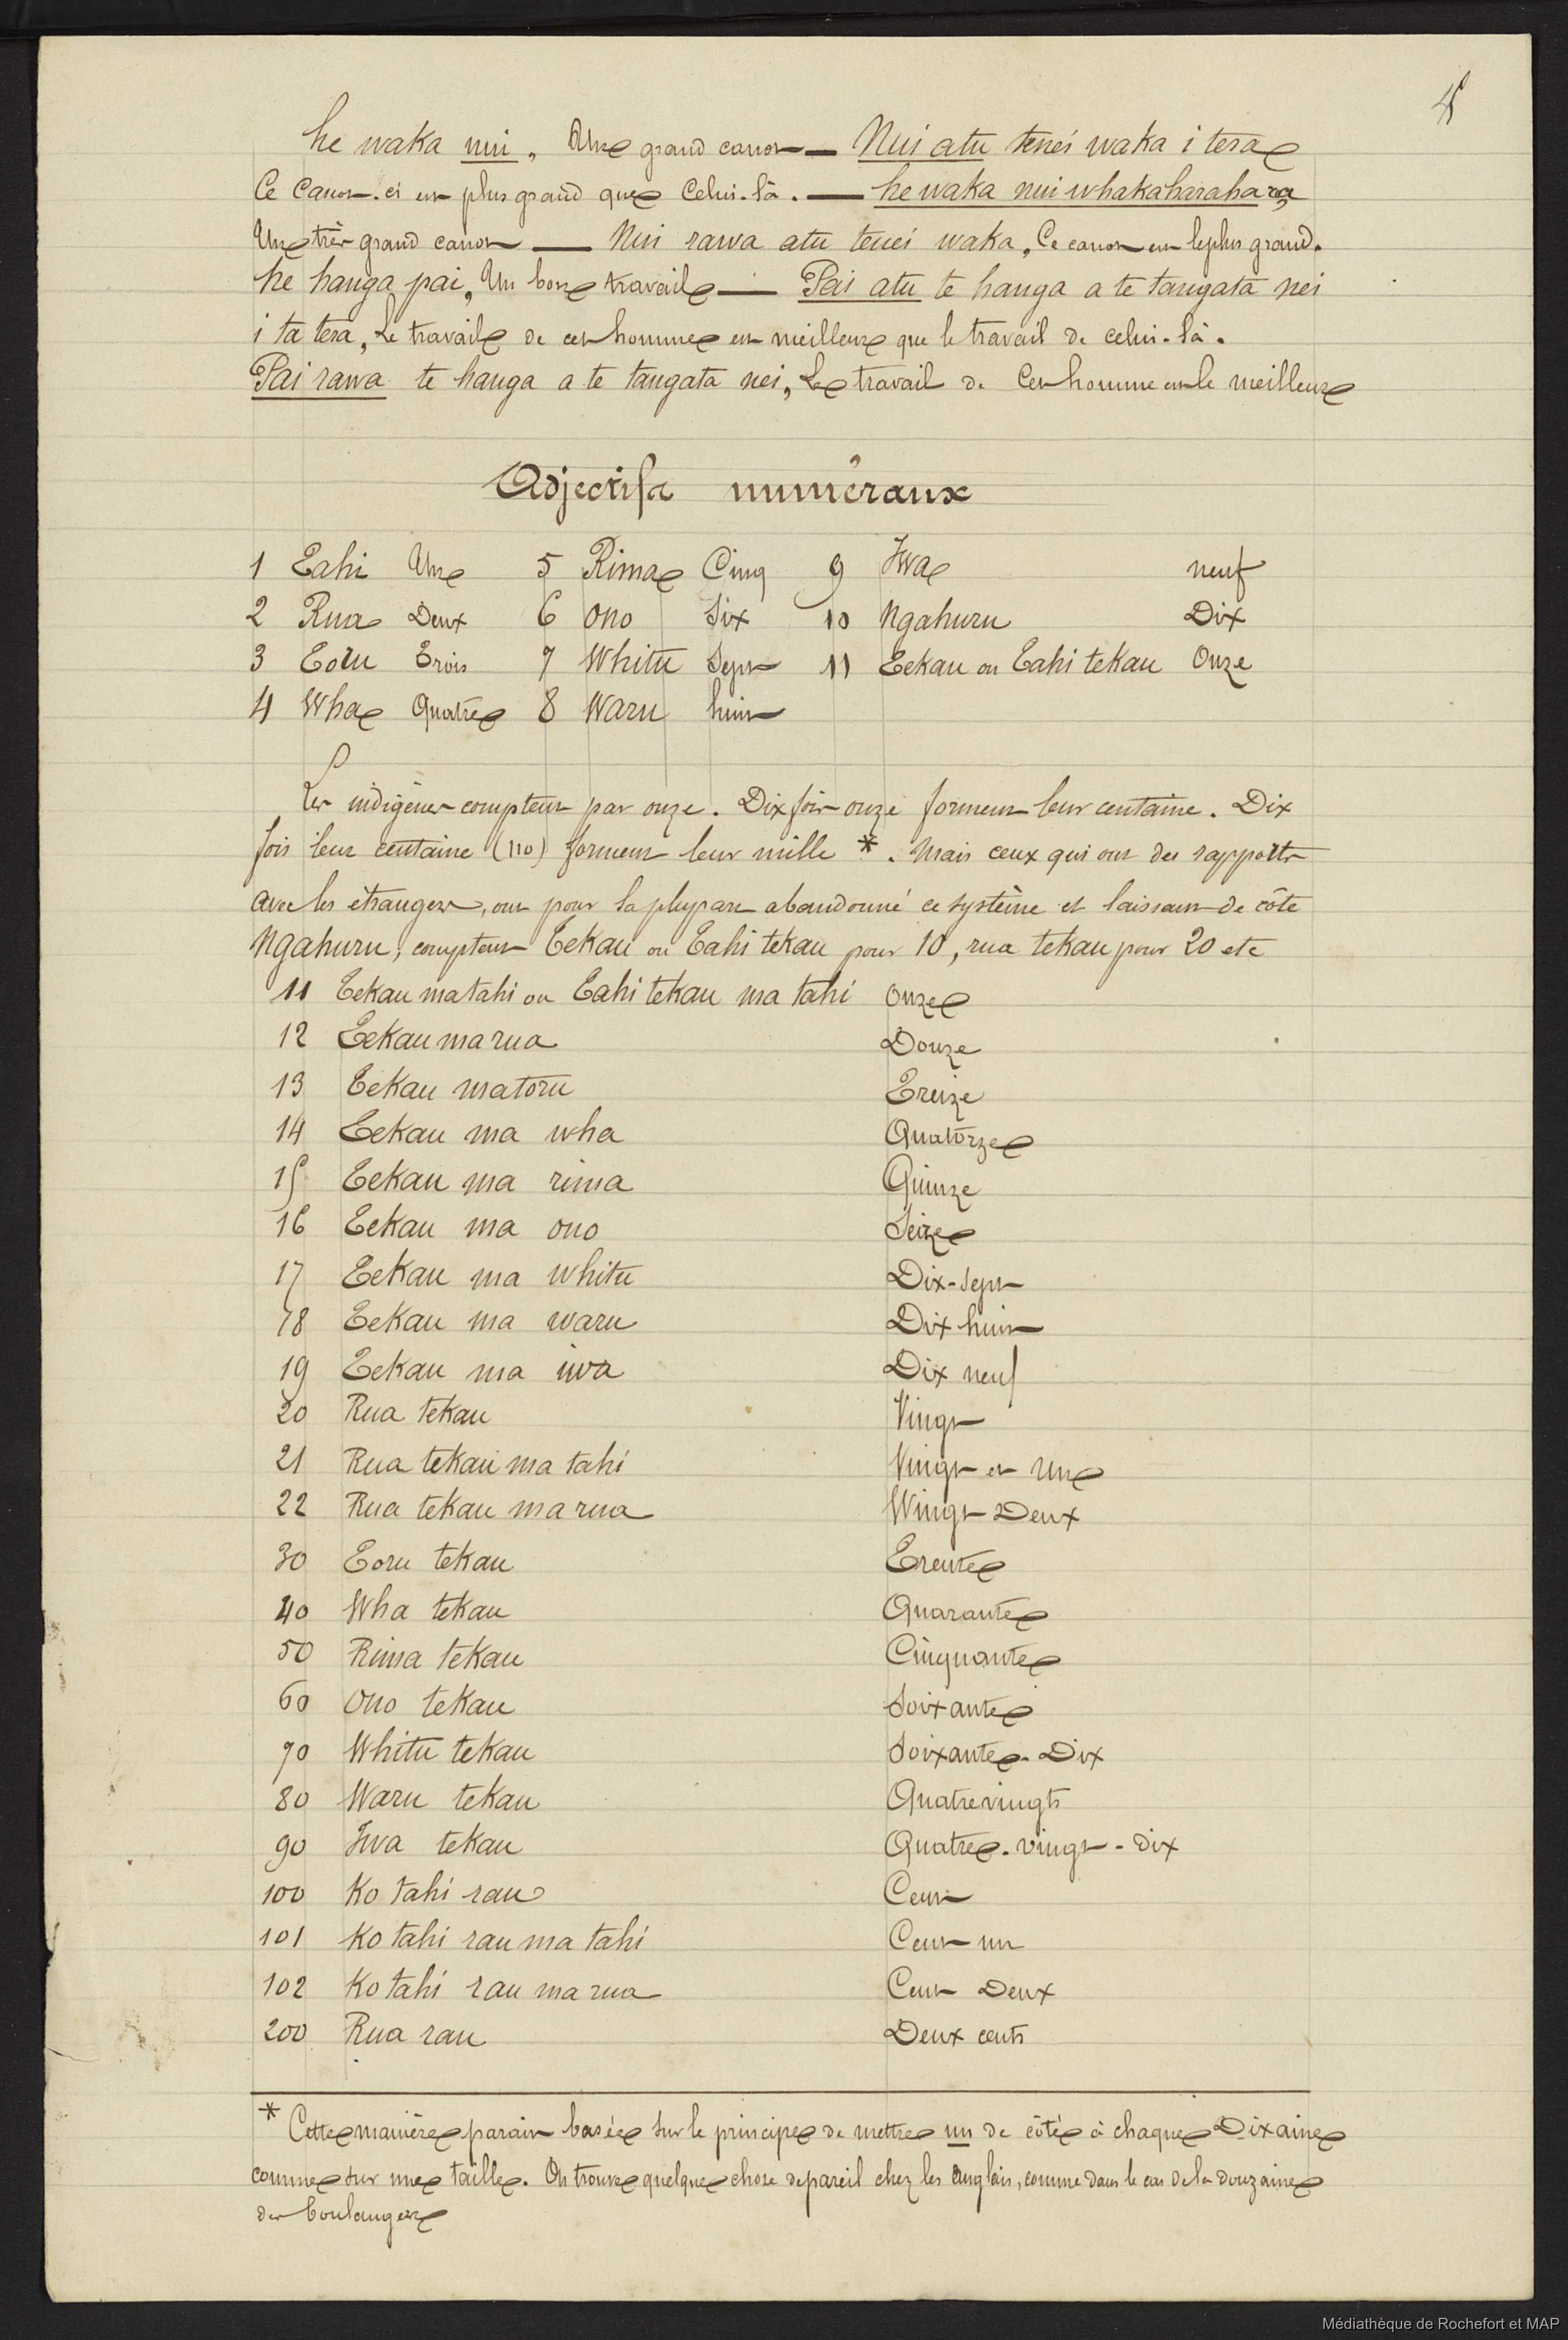 4
he waka nui, Un grand canot — Nui atu tenei waka i tera
Ce canot-ci est plus grand que celui-là. — he waka nui whakaharahara
Un très grand canot — Nui rawa atu tenei waka, Ce canot est le plus grand.
he hanga pai, Un bon travail — Pai atu te hanga a te tangata nei
i ta tera, Le travail de cet homme est meilleur que le travail de celui-là.
Pai rawa te hanga a te tangata nei, Le travail de cet homme est le meilleur
Adjectifs numéraux
1 Tahi Un 5 Rima Cinq 9 Iwa neuf
2 Rua Deux 6 Ono Six 10 Ngahuru Dix
3 Toru Trois 7 Whitu Sept 11 Tekau ou Tahi tekau Onze
4 Wha Quatre 8 Waru huit
Les indigènes comptent par onze. Dix fois onze forment leur centaine. Dix
fois leur centaine (110) forment leur mille *. Mais ceux qui ont des rapports
avec les étrangers, ont pour la plupart abandonné ce système et laissant de côté
Ngahuru, comptent Tekau ou Tahi tekau pour 10, rua tekau pour 20 etc
11 Tekau ma tahi ou Tahi tekau ma tahi Onze
12 Tekau ma rua Douze
13 Tekau ma toru Treize
14 Tekau ma wha Quatorze
15 Tekau ma rima Quinze
16 Tekau ma ono Seize
17 Tekau ma whitu Dix-sept
18 Tekau ma waru Dix huit
19 Tekau ma iwa Dix neuf
20 Rua tekau Vingt
21 Rua tekau ma tahi Vingt et un
22 Rua tekau ma rua Vingt Deux
30 Toru tekau Trente
40 Wha tekau Quarante
50 Rima tekau Cinquante
60 Ono tekau Soixante
70 Whitu tekau Soixante-Dix
80 Waru tekau Quatrevingts
90 Iwa tekau Quatre-vingt-dix
100 Ko tahi rau Cent
101 Ko tahi rau ma tahi Cent un
102 Ko tahi rau ma rua Cent Deux
200 Rua rau Deux cents
* Cette manière parait basée sur le principe de mettre un de côté à chaque Dixaine
comme sur une taille. On trouve quelque chose de pareil chez les anglais, comme dans le cas de la douzaine
des boulangers
Médiathèque de Rochefort et MAP